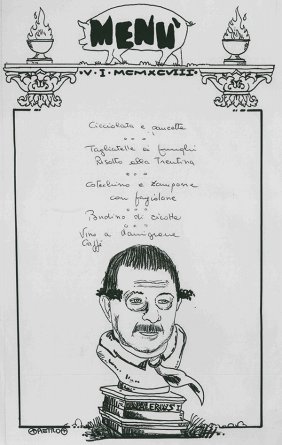 MENÙ
• V • I • MCMXCVIII •
Cicciolata e pancetta
Tagliatelle ai funghi
Risotto alla Trentina
Cotechino e Zampone
con fagiolane
Budino di ricotta
Vino a damigiane
Caffè
VALERIUS I